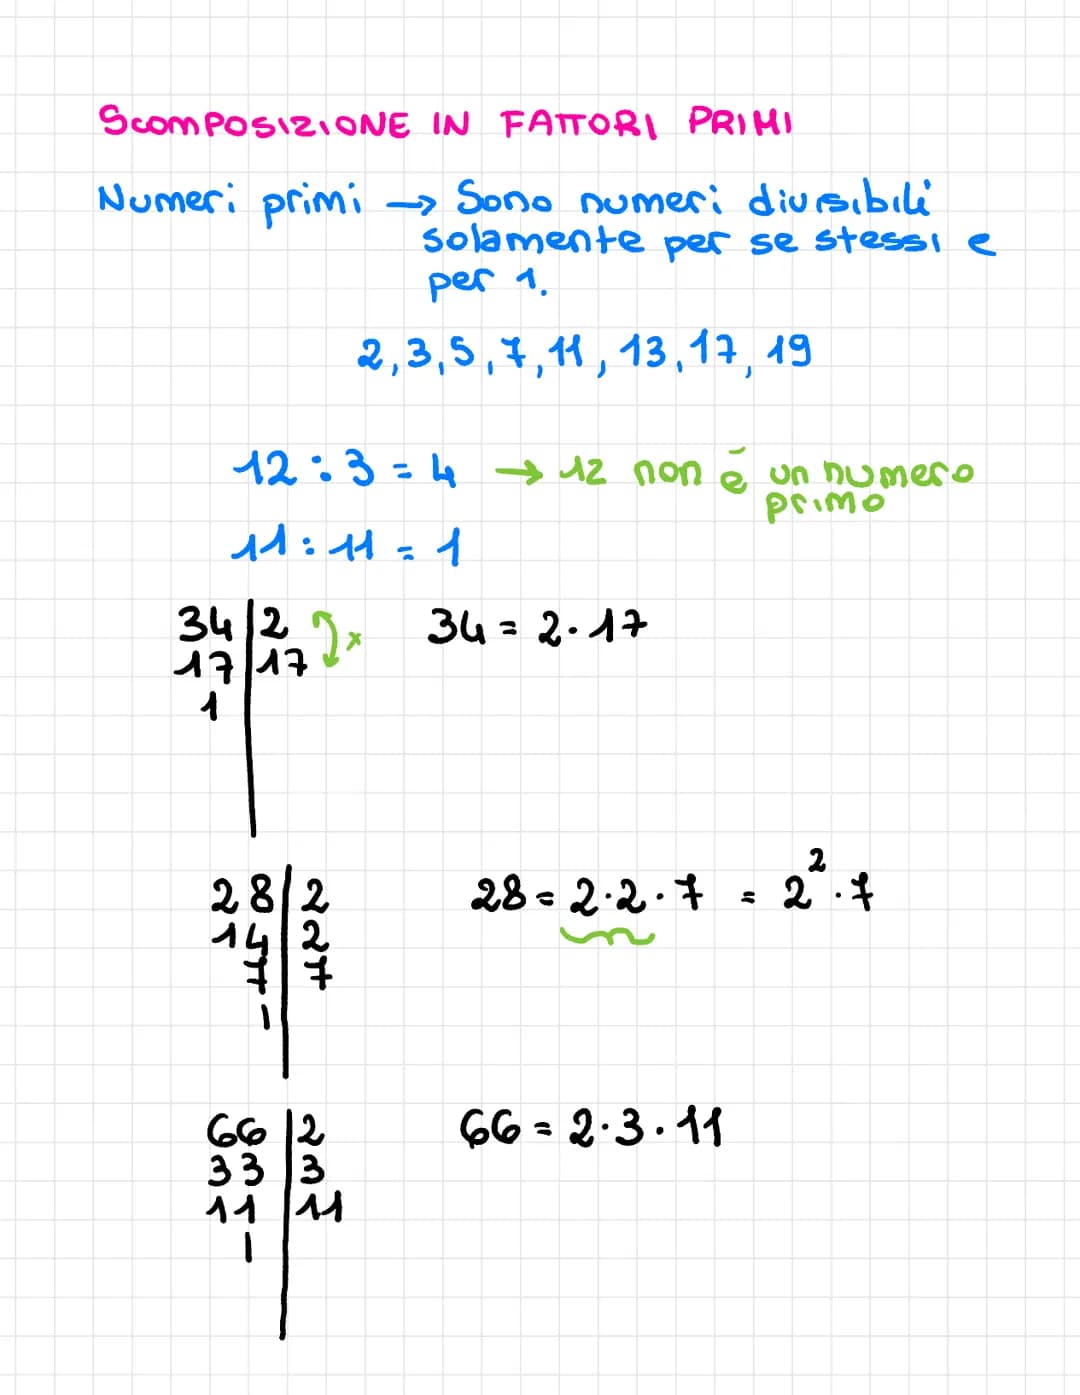 ScomPOSIZIONE IN FATTORI PRIMI
Numeri primi → Sono numeri divisibili
solamente per se stessi e
per 1.
2, 3, 5, 7, 11, 13, 17, 19
12 : 3 = 4 → 12 non è un numero
primo
11 : 11 = 1
34 | 2 x 34 = 2 · 17
17 | 17
1
28 | 2 28 = 2 · 2 · 7 = 2² · 7
14 | 2
7 | 7
1
66 | 2 66 = 2 · 3 · 11
33 | 3
11 | 11
1